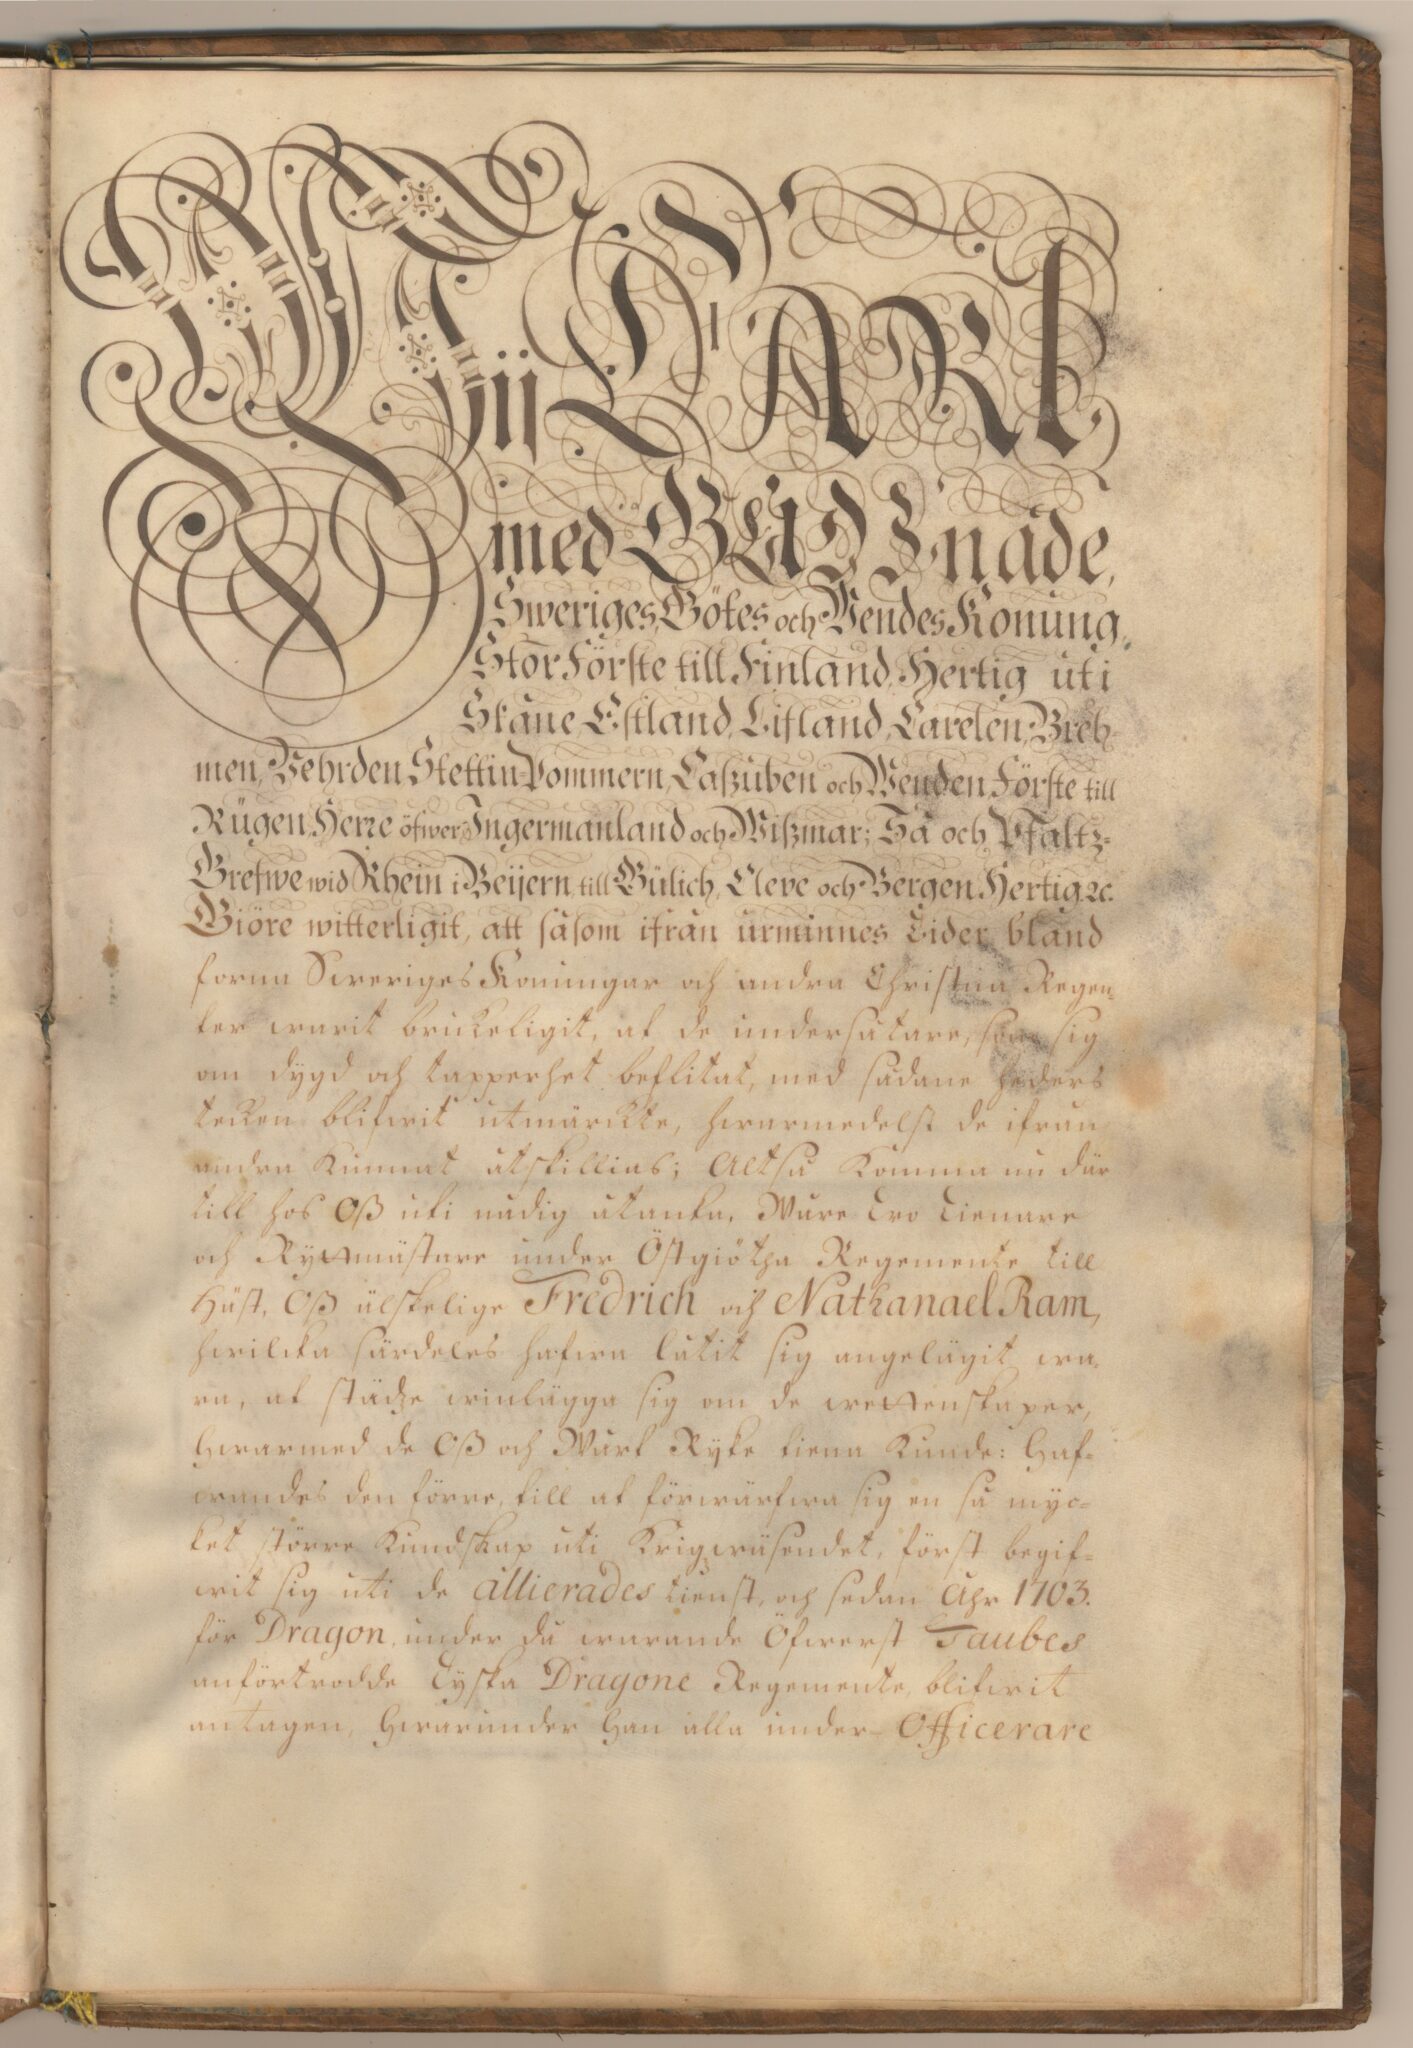 Wij CARL
med GUDZ nåde,
Sweriges, Götes och Wendes Konung,
StorFörste till Finland, Hertig uti
Skåne, Estland, Lifland, Carelen, Breh-
men, Vehrden, Stettin-Pommern, Caßuben och Wenden, Förste till
Rügen, Herre öfwer Ingermanland och Wißmar; Så och Pfaltz-
Grefwe wid Rhein i Beijern, till Gülich, Cleve och Bergen Hertig. &c.
Giöre witterligit, att såsom ifrån urminnes Tider bland
forna Sweriges Konungar och andra Christna Regen-
ter warit brukeligit, at de undersåtare, som sig
om dygd och tapperhet beflitat, med sådane heders
tecken blifwit utmärckte, hwarmedelst de ifrån
andra kunnat åtskillias; Altså komma nu där
till hos Oß uti nådig åtanka, Wåre Tro Tienare
och Ryttmästare under Östgiötha Regemente till
Häst, Oß älskelige Fredrich och Nathanael Ram,
hwilcka särdeles hafwa låtit sig angelägit wa-
ra, at städze winlägga sig om de wettenskaper,
hwarmed de Oß och Wårt Ryke tiena kunde: Haf-
wandes den förre, till at förwärfwa sig en så myc-
ket större kundskap uti Krigswäsendet, först begif-
wit sig uti de allierades tienst, och sedan Åhr 1703.
för Dragon, under då warande Öfwerst Taubes
anförtrodde Tyska Dragone Regemente, blifwit
antagen, hwarunder han alla under-Officerare